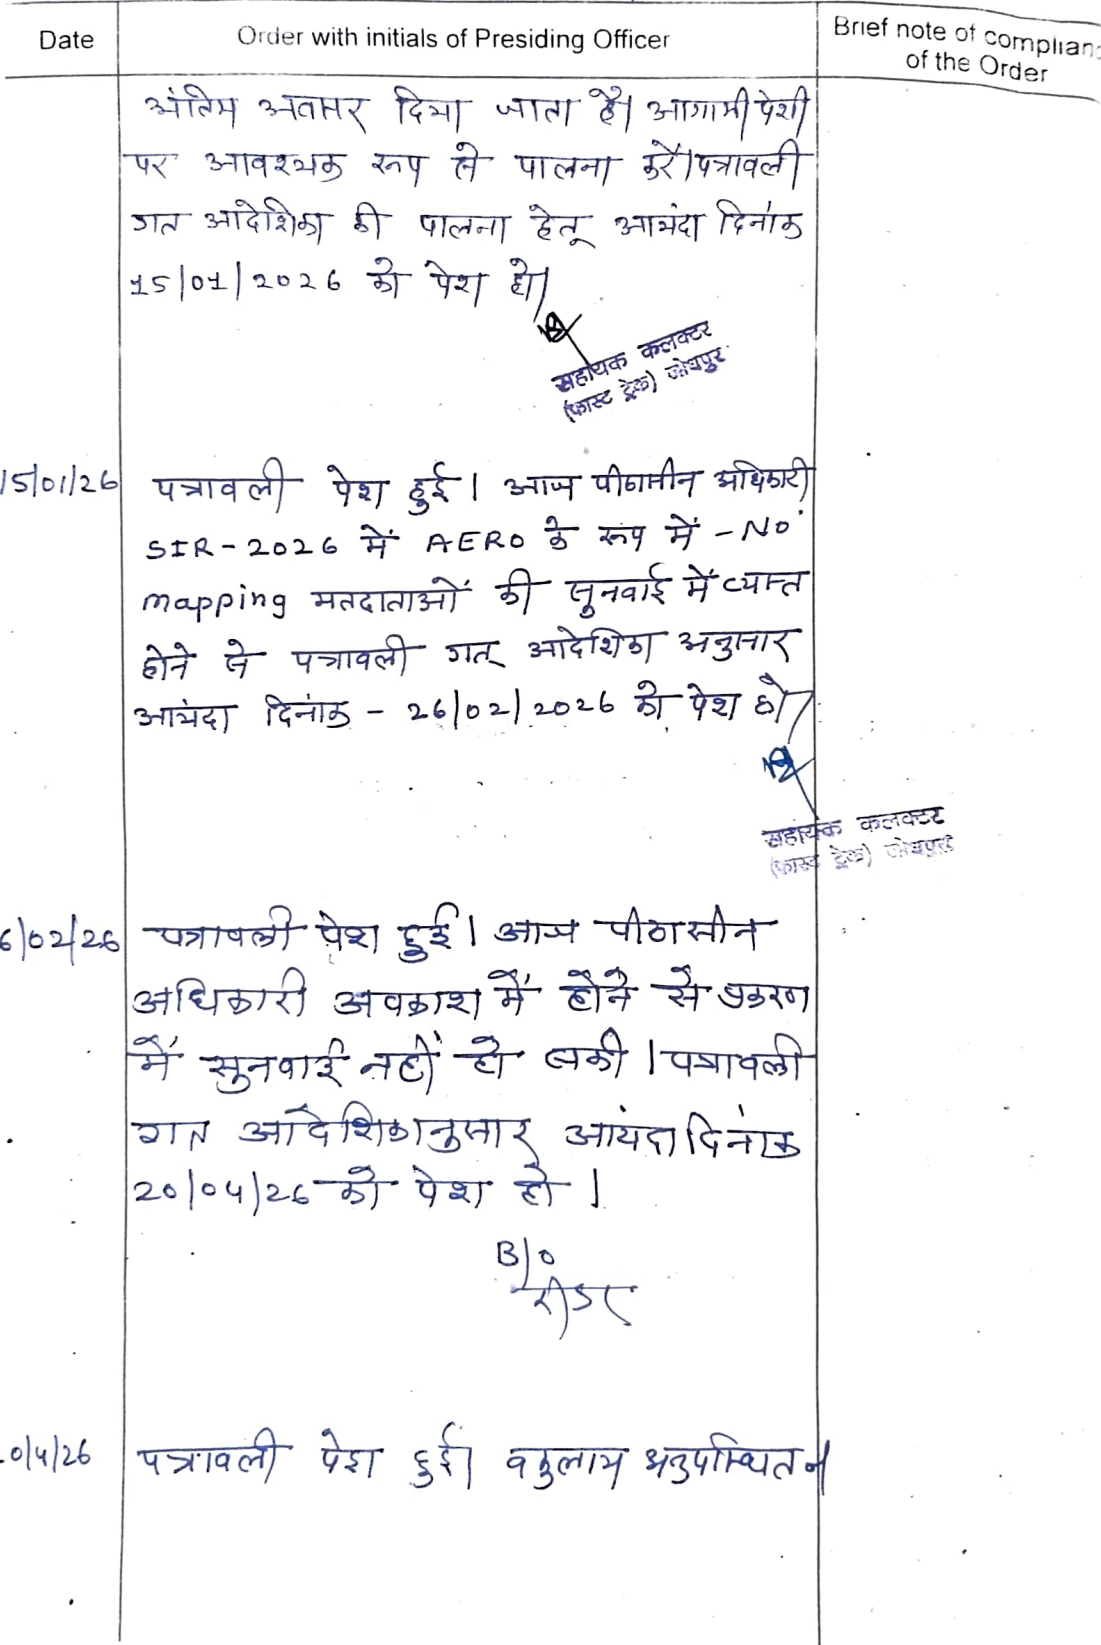 Date
Order with initials of Presiding Officer
Brief note of complianc
of the Order
अंतिम अवसर दिया जाता है। आगामी पेशी
पर आवश्यक रूप से पालना करें। पत्रावली
गत आदेशिका की पालना हेतू आयंदा दिनांक
15/01/2026 को पेश हो।
सहायक कलक्टर
(फास्ट ट्रेक) जोधपुर
15/01/26
पत्रावली पेश हुई। आज पीठासीन अधिकारी
SIR-2026 में AERO के रूप में - No
mapping मतदाताओं की सुनवाई में व्यस्त
होने से पत्रावली गत् आदेशिका अनुसार
आयंदा दिनांक - 26/02/2026 को पेश हो।
सहायक कलक्टर
(फास्ट ट्रेक) जोधपुर
6/02/26
पत्रावली पेश हुई। आज पीठासीन
अधिकारी अवकाश में होने से प्रकरण
में सुनवाई नहीं हो सकी। पत्रावली
गत आदेशिकानुसार आयंदा दिनांक
20/04/26 को पेश हो।
B/o
रीडर
0/4/26
पत्रावली पेश हुई। वकुलाय अनुपस्थित